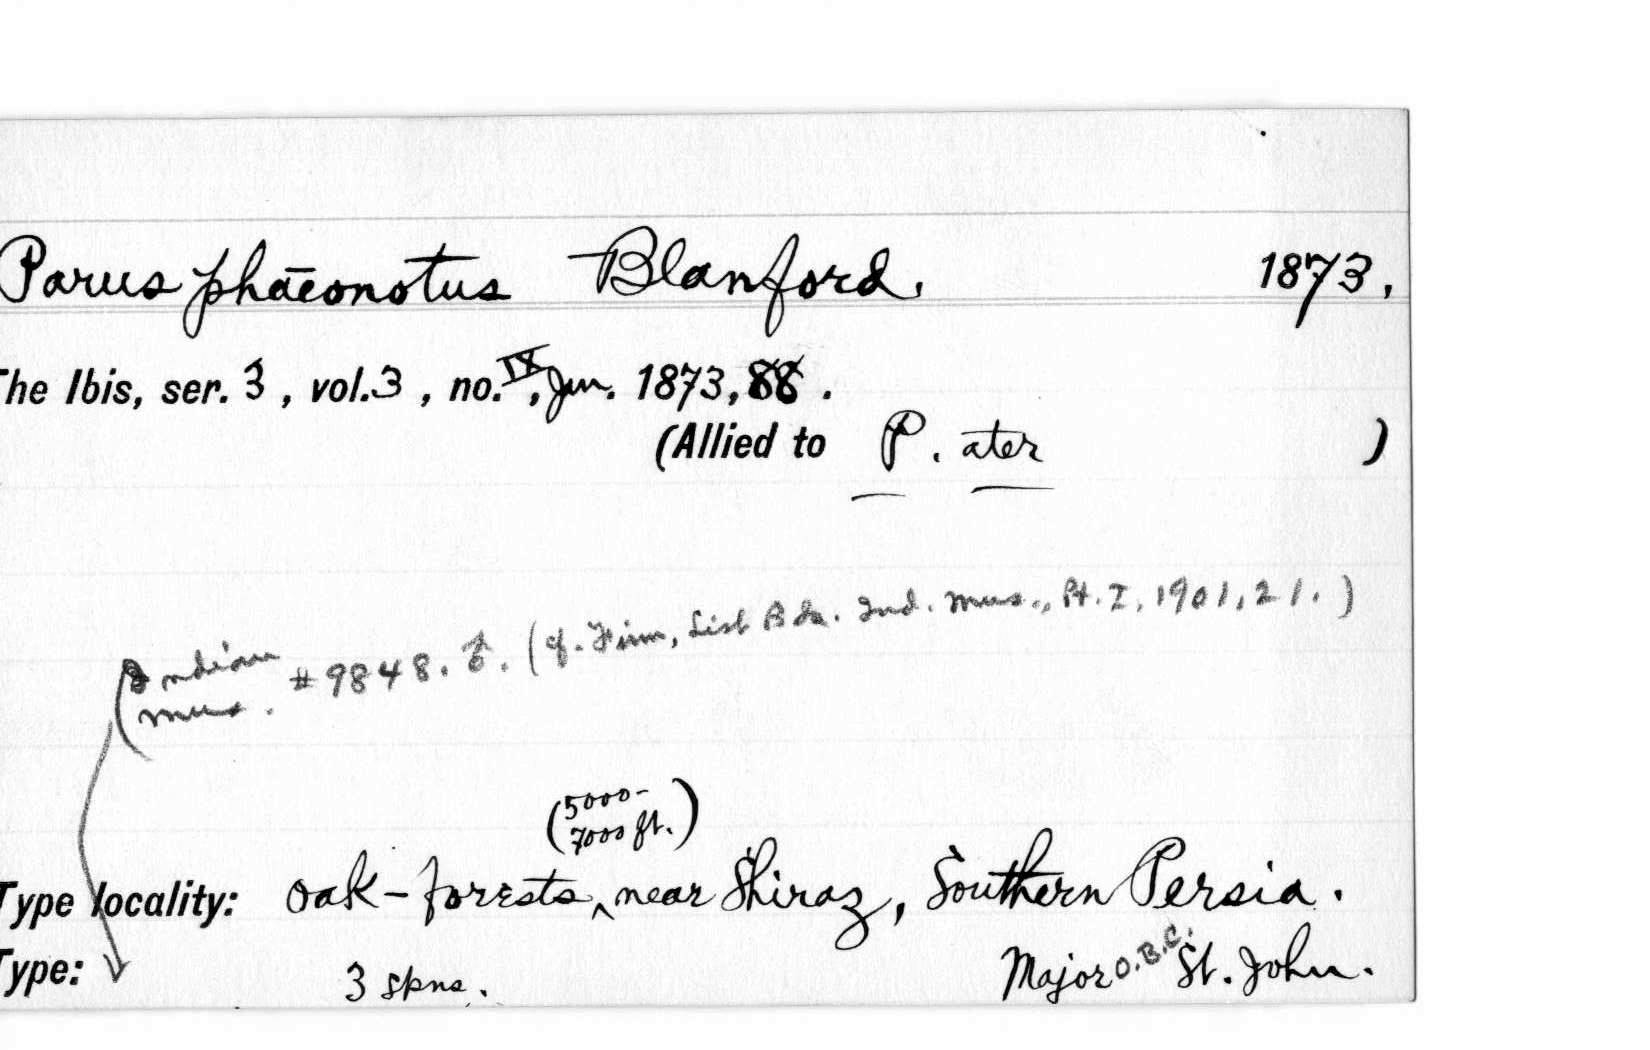 Parus phaeonotus Blanford. 1873.
The Ibis, ser. 3, vol. 3, no. IX, Jan. 1873, 88.
(Allied to P. ater )
Indian Mus. #9848. ♂. (cf. Finn, List Bds. Ind. Mus., Pt. I, 1901, 21.)
(5000-
7000 ft.)
Type locality: oak-forests, near Shiraz, Southern Persia.
Type: 3 spns. Major O.B.C. St. John.